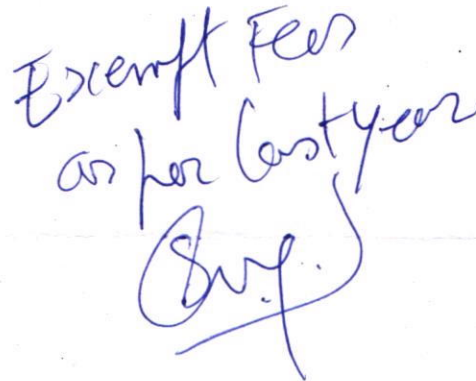 Exempt Fees
as per last year